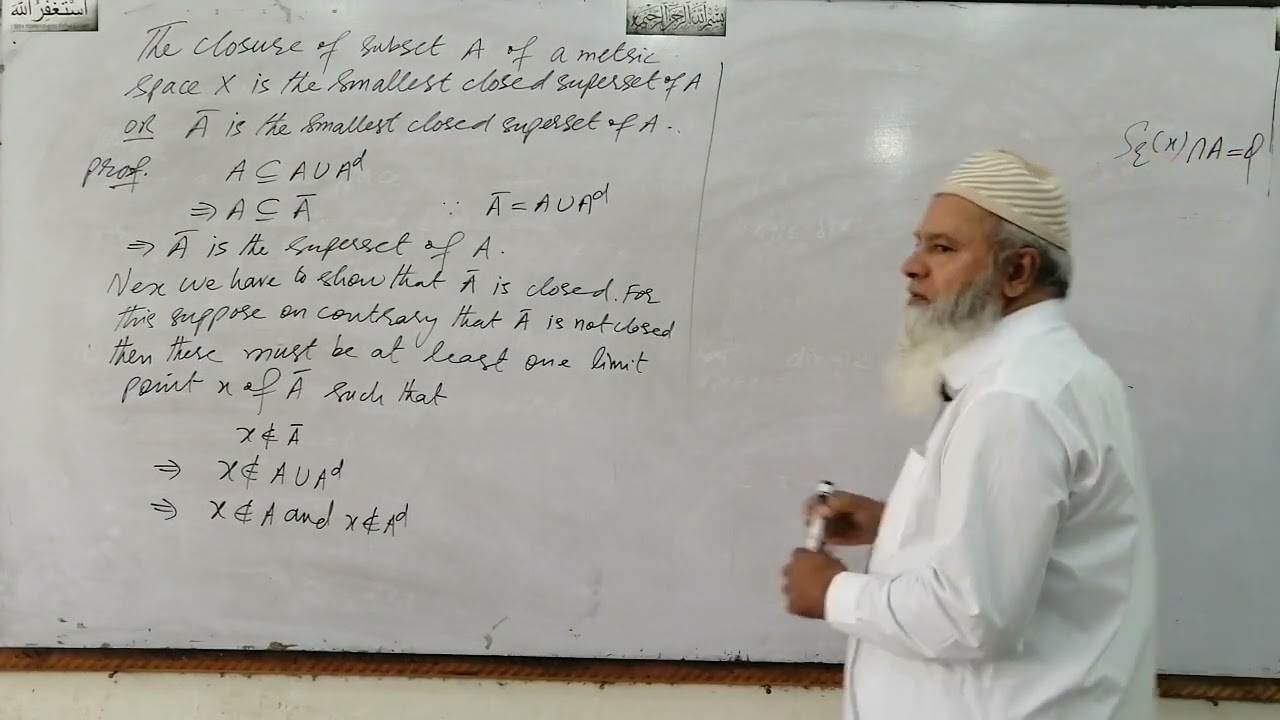 أستغفر الله
بسم الله الرحمن الرحيم
The closure of subset A of a metric
space X is the smallest closed superset of A
OR Ā is the smallest closed superset of A.
proof. A ⊆ A∪Aᵈ
⇒ A ⊆ Ā ∵ Ā = A∪Aᵈ
⇒ Ā is the superset of A.
Nex we have to show that Ā is closed. For
this suppose on contrary that Ā is not closed
then there must be at least one limit
point x of Ā such that
x ∉ Ā
⇒ x ∉ A∪Aᵈ
⇒ x ∉ A and x ∉ Aᵈ
Sε(x)∩A=φ